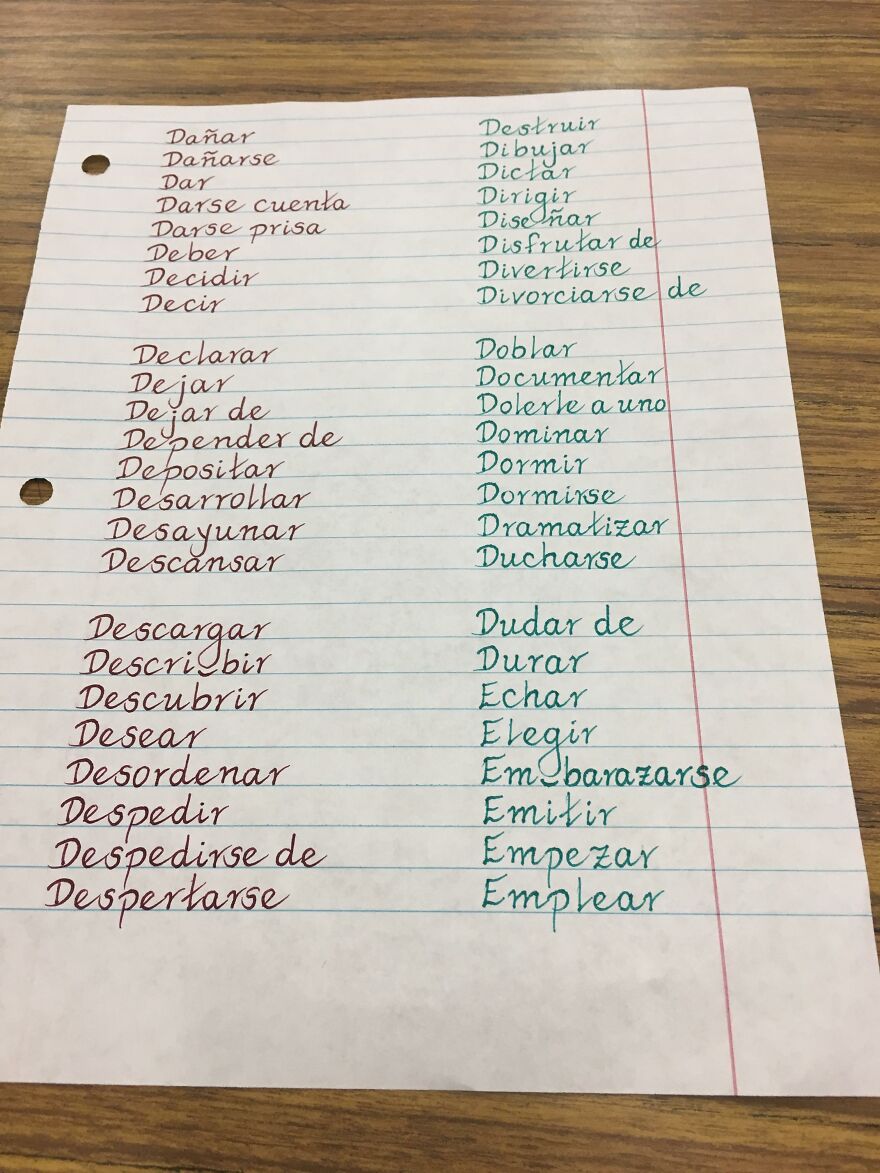 Dañar
Dañarse
Dar
Darse cuenta
Darse prisa
Deber
Decidir
Decir
Declarar
Dejar
Dejar de
Depender de
Depositar
Desarrollar
Desayunar
Descansar
Descargar
Describir
Descubrir
Desear
Desordenar
Despedir
Despedirse de
Despertarse
Destruir
Dibujar
Dictar
Dirigir
Diseñar
Disfrutar de
Divertirse
Divorciarse de
Doblar
Documentar
Dolerle a uno
Dominar
Dormir
Dormirse
Dramatizar
Ducharse
Dudar de
Durar
Echar
Elegir
Embarazarse
Emitir
Empezar
Emplear